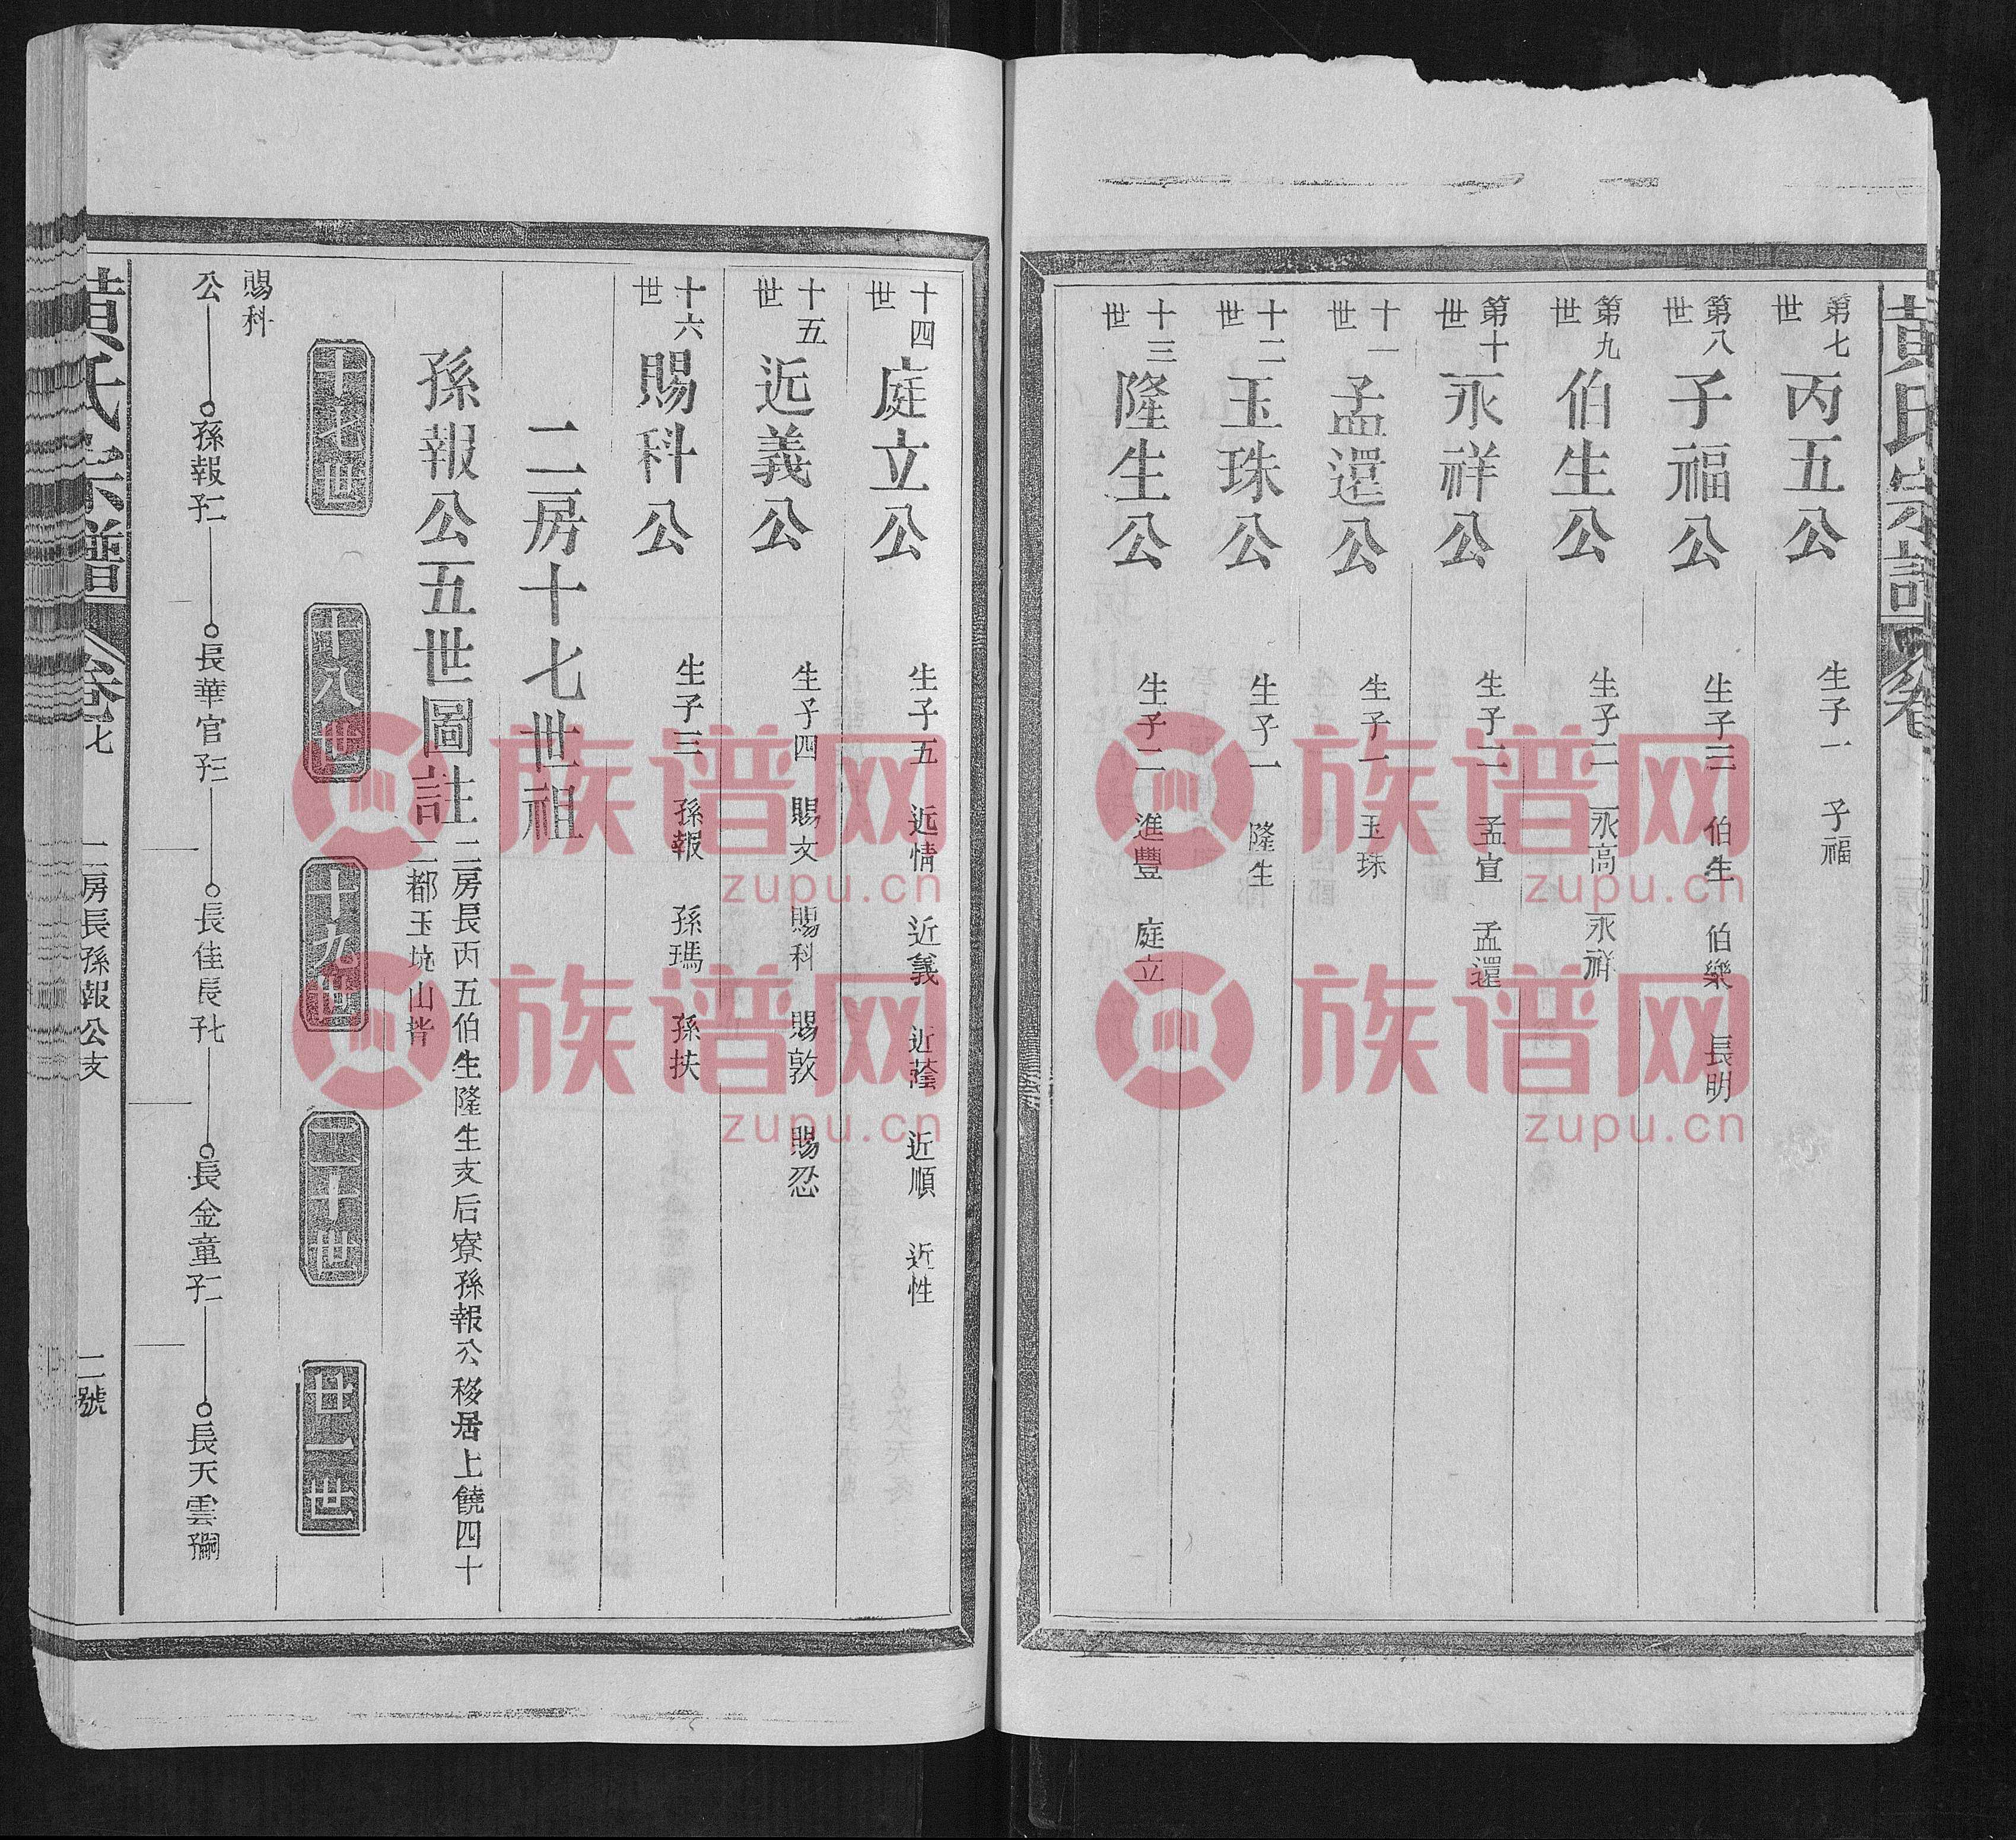 黃氏宗譜 卷
第七世 丙五公 生子一 子福
第八世 子福公 生子三 伯生 伯樂 長明
第九世 伯生公 生子二 永高 永祥
第十世 永祥公 生子二 孟宣 孟還
十一世 孟還公 生子一 玉珠
十二世 玉珠公 生子一 隆生
十三世 隆生公 生子二 進豐 庭立
十四世 庭立公 生子五 近情 近義 近蔭 近順 近性
十五世 近義公 生子四 賜文 賜科 賜敦 賜忍
十六世 賜科公 生子三 孫報 孫瑪 孫扶
二房十七世祖
孫報公五世圖註 二房長丙五伯生隆生支后寮孫報公移居上饒四十
二都玉坑山
十七世 十八世 十九世 二十世 世一世
賜科
公 孫報子二 長華官子三 長佳長子七 長金童子二 長天雲
黃氏宗譜 卷七 二房長孫報公支 二號
族谱网
zupu.cn
族谱网
zupu.cn
族谱网
zupu.cn
族谱网
zupu.cn